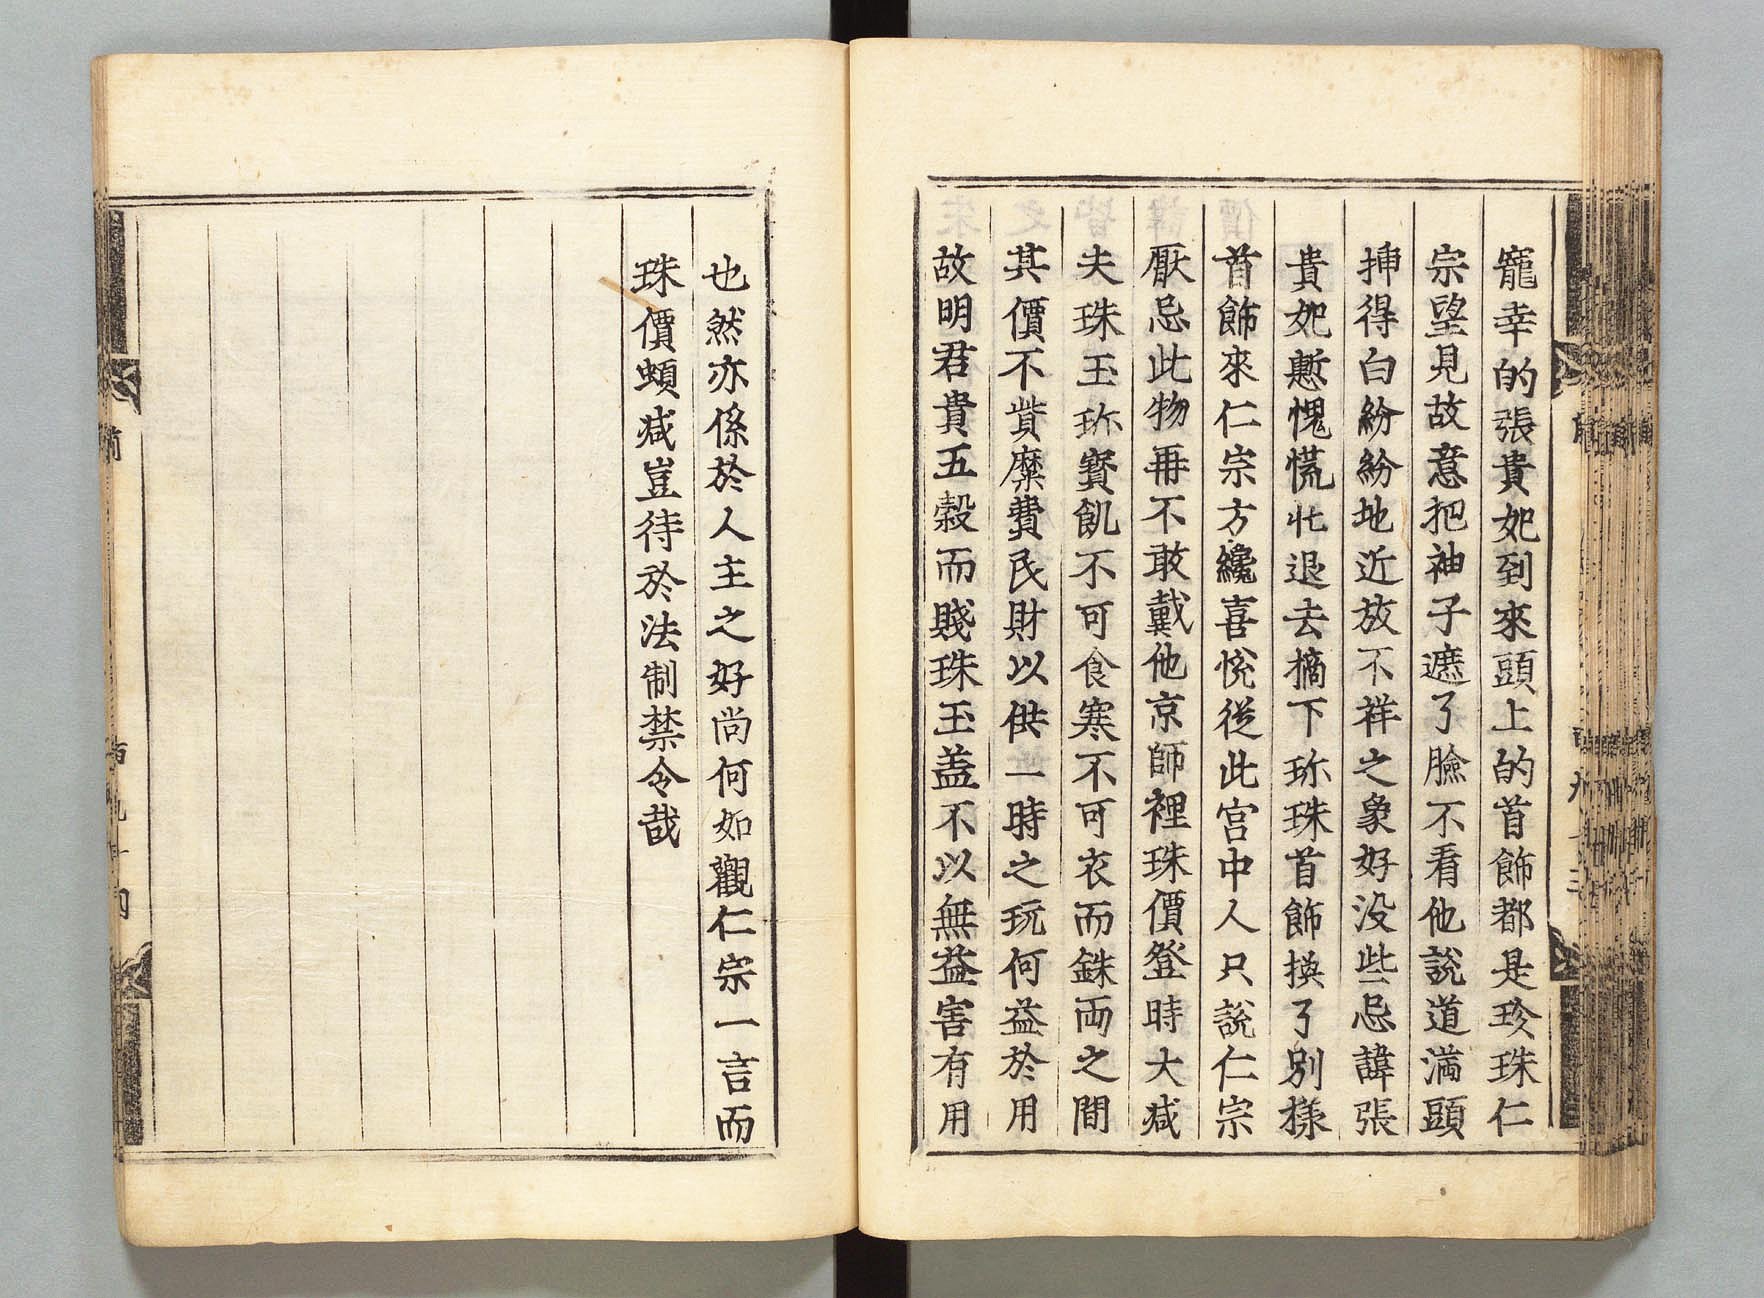 寵幸的張貴妃到來頭上的首飾都是珍珠仁
宗望見故意把袖子遮了臉不看他說道滿頭
揷得白紛紛地近放不祥之象好没些忌諱張
貴妃慙愧慌忙退去摘下珎珠首飾換了別樣
首飾來仁宗方纔喜悅從此宮中人只說仁宗
厭忌此物再不敢戴他京師裡珠價登時大减
夫珠玉珎寶飢不可食寒不可衣而銖両之間
其價不貲糜費民財以供一時之玩何益於用
故明君貴五穀而賤珠玉盖不以無益害有用
也然亦係於人主之好尚何如觀仁宗一言而
珠價頓减豈待於法制禁令哉